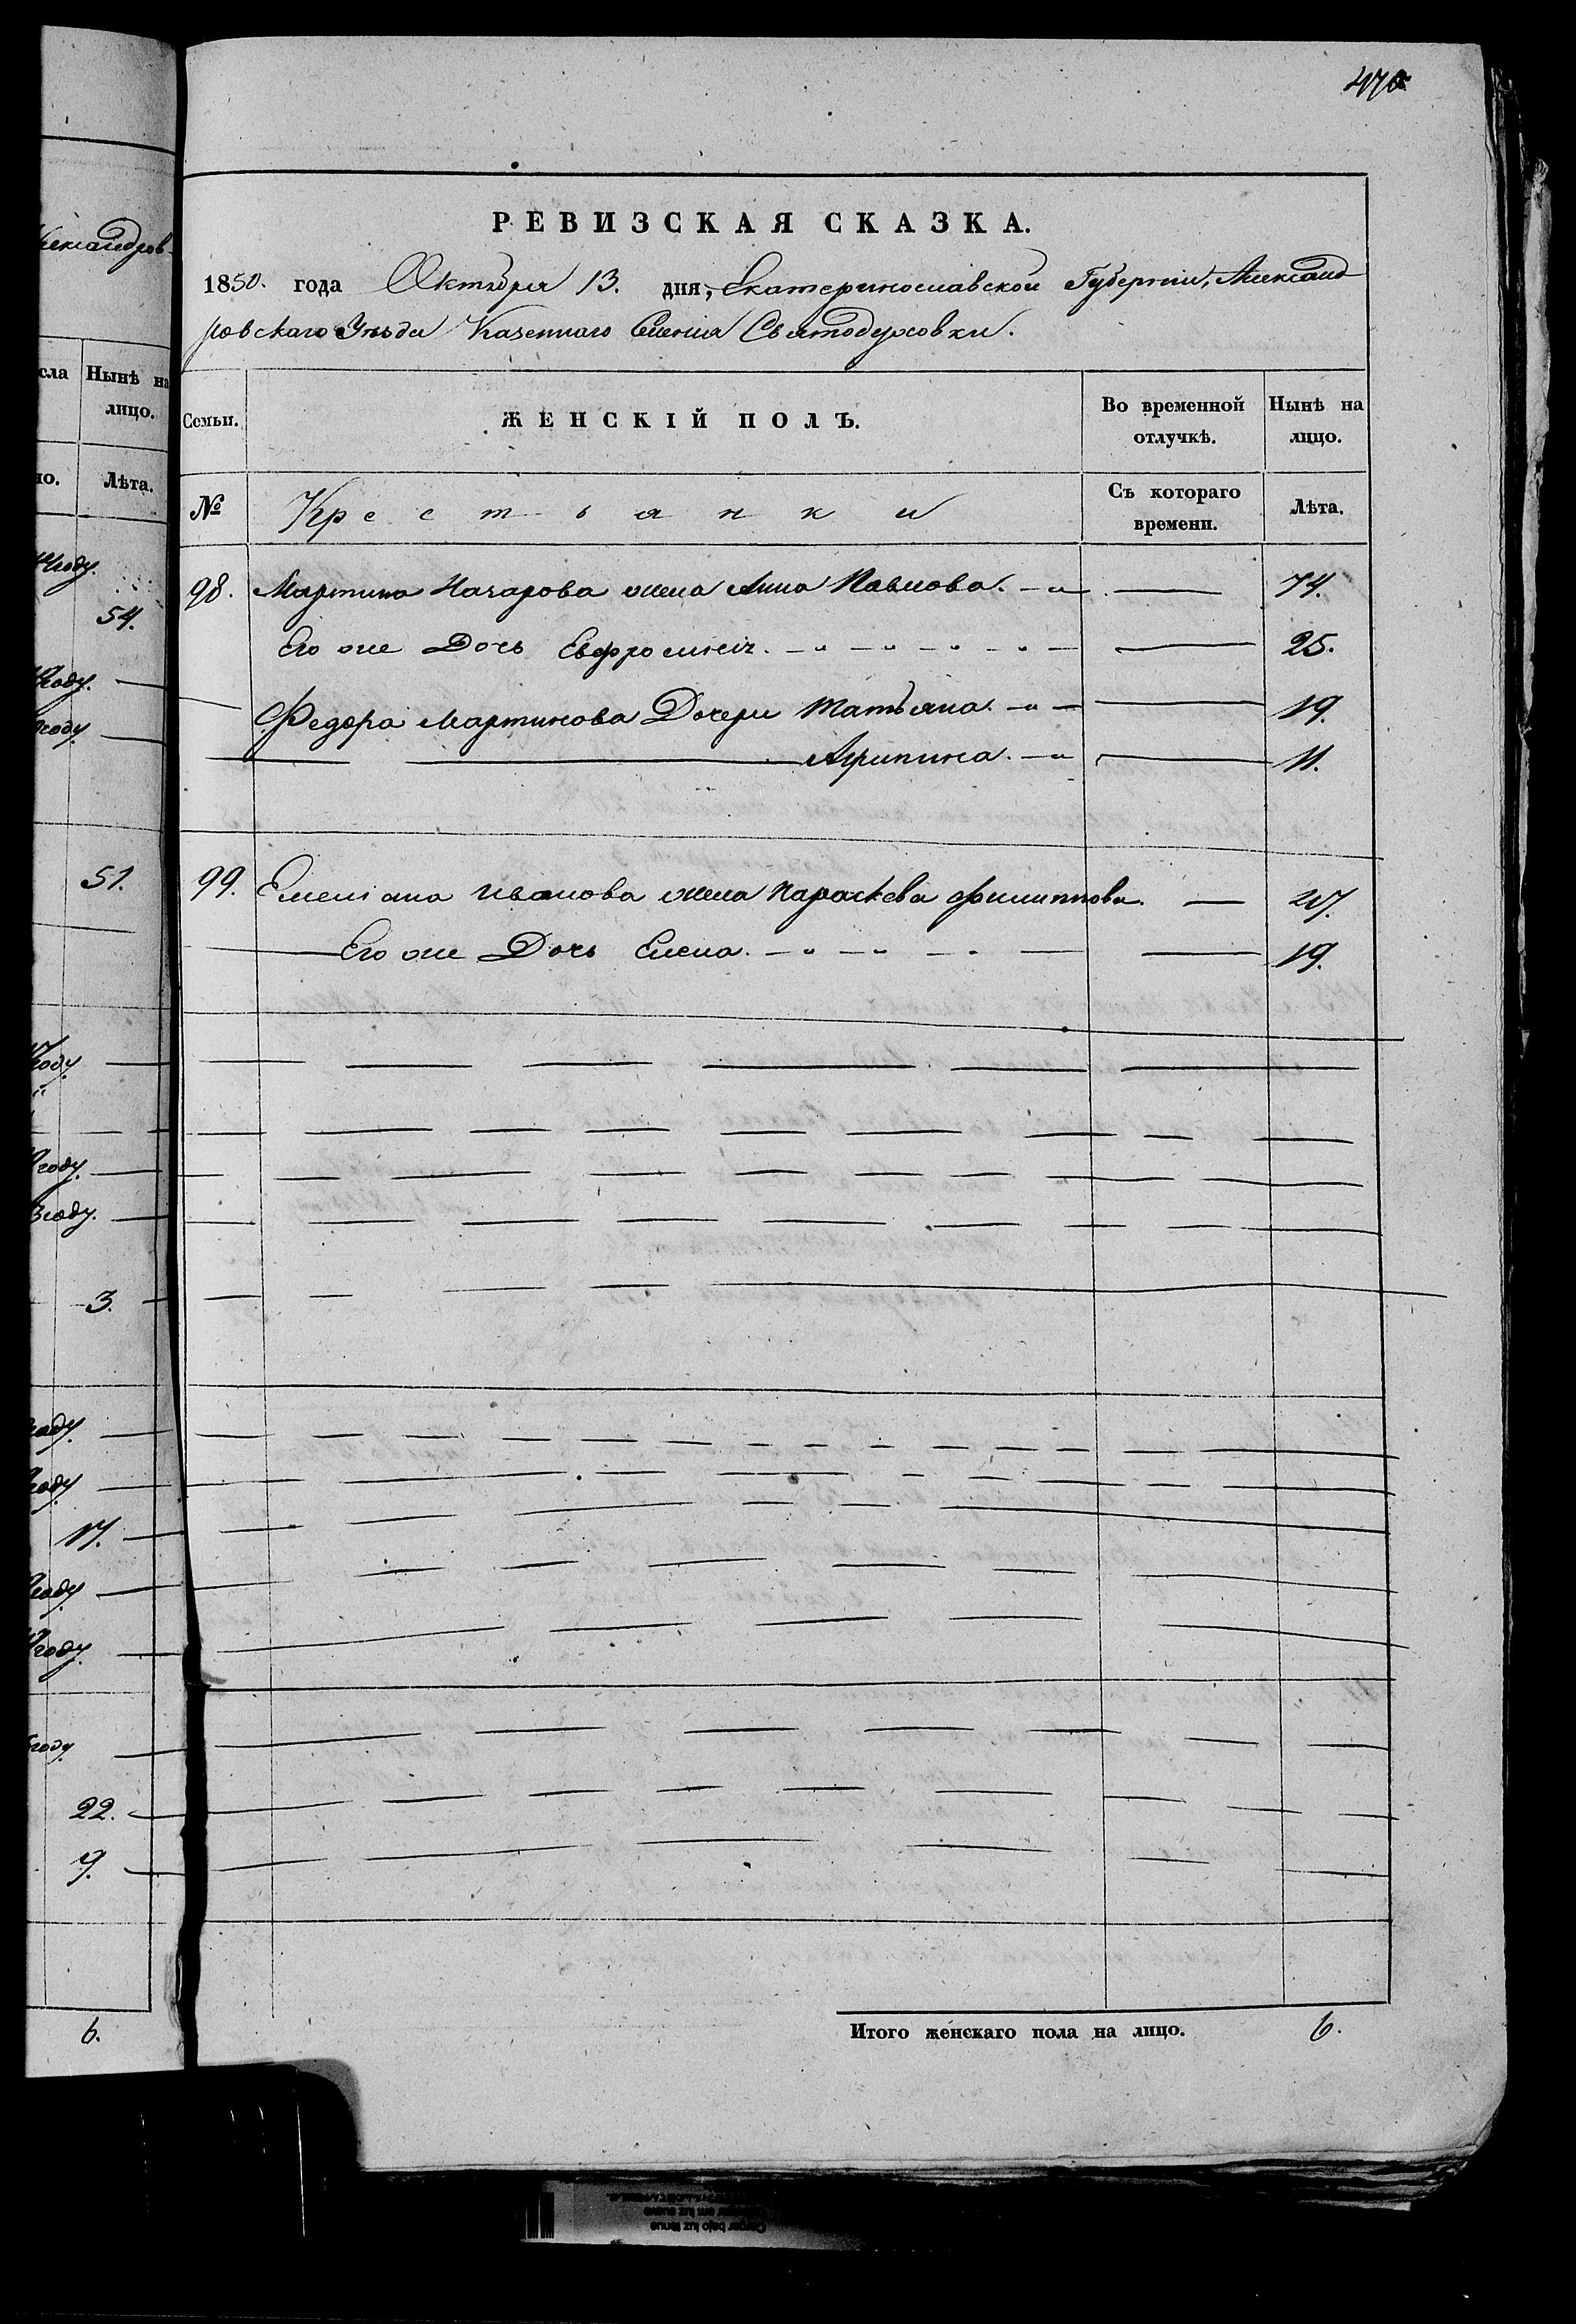 470
РЕВИЗСКАЯ СКАЗКА.
1850. года Октября 13. дня, Екатеринославской Губерніи, Александ
ровскаго Уѣзда Казеннаго Селенія Святодуховки.
Семьи.
ЖЕНСКІЙ ПОЛЪ.
Во временной отлучкѣ.
Нынѣ на лицо.
№
Крестьянки
Съ котораго времени.
Лѣта.
98. Мартина Назарова жена Анна Павлова. 74.
Его же Дочь Евфросинія. 25.
Федора Мартинова Дочери Татьяна. 19.
Агрипина. 11.
99. Емельяна Иванова жена Параскева Филиппова. 47.
Его же Дочь Елена. 19.
Итого женскаго пола на лицо. 6.
лександров-
сла
Нынѣ на
лицо.
но.
Лѣта.
году.
54.
году.
году.
51.
году.
году.
году.
3.
году.
году.
17.
году.
году.
году.
22.
9.
6.